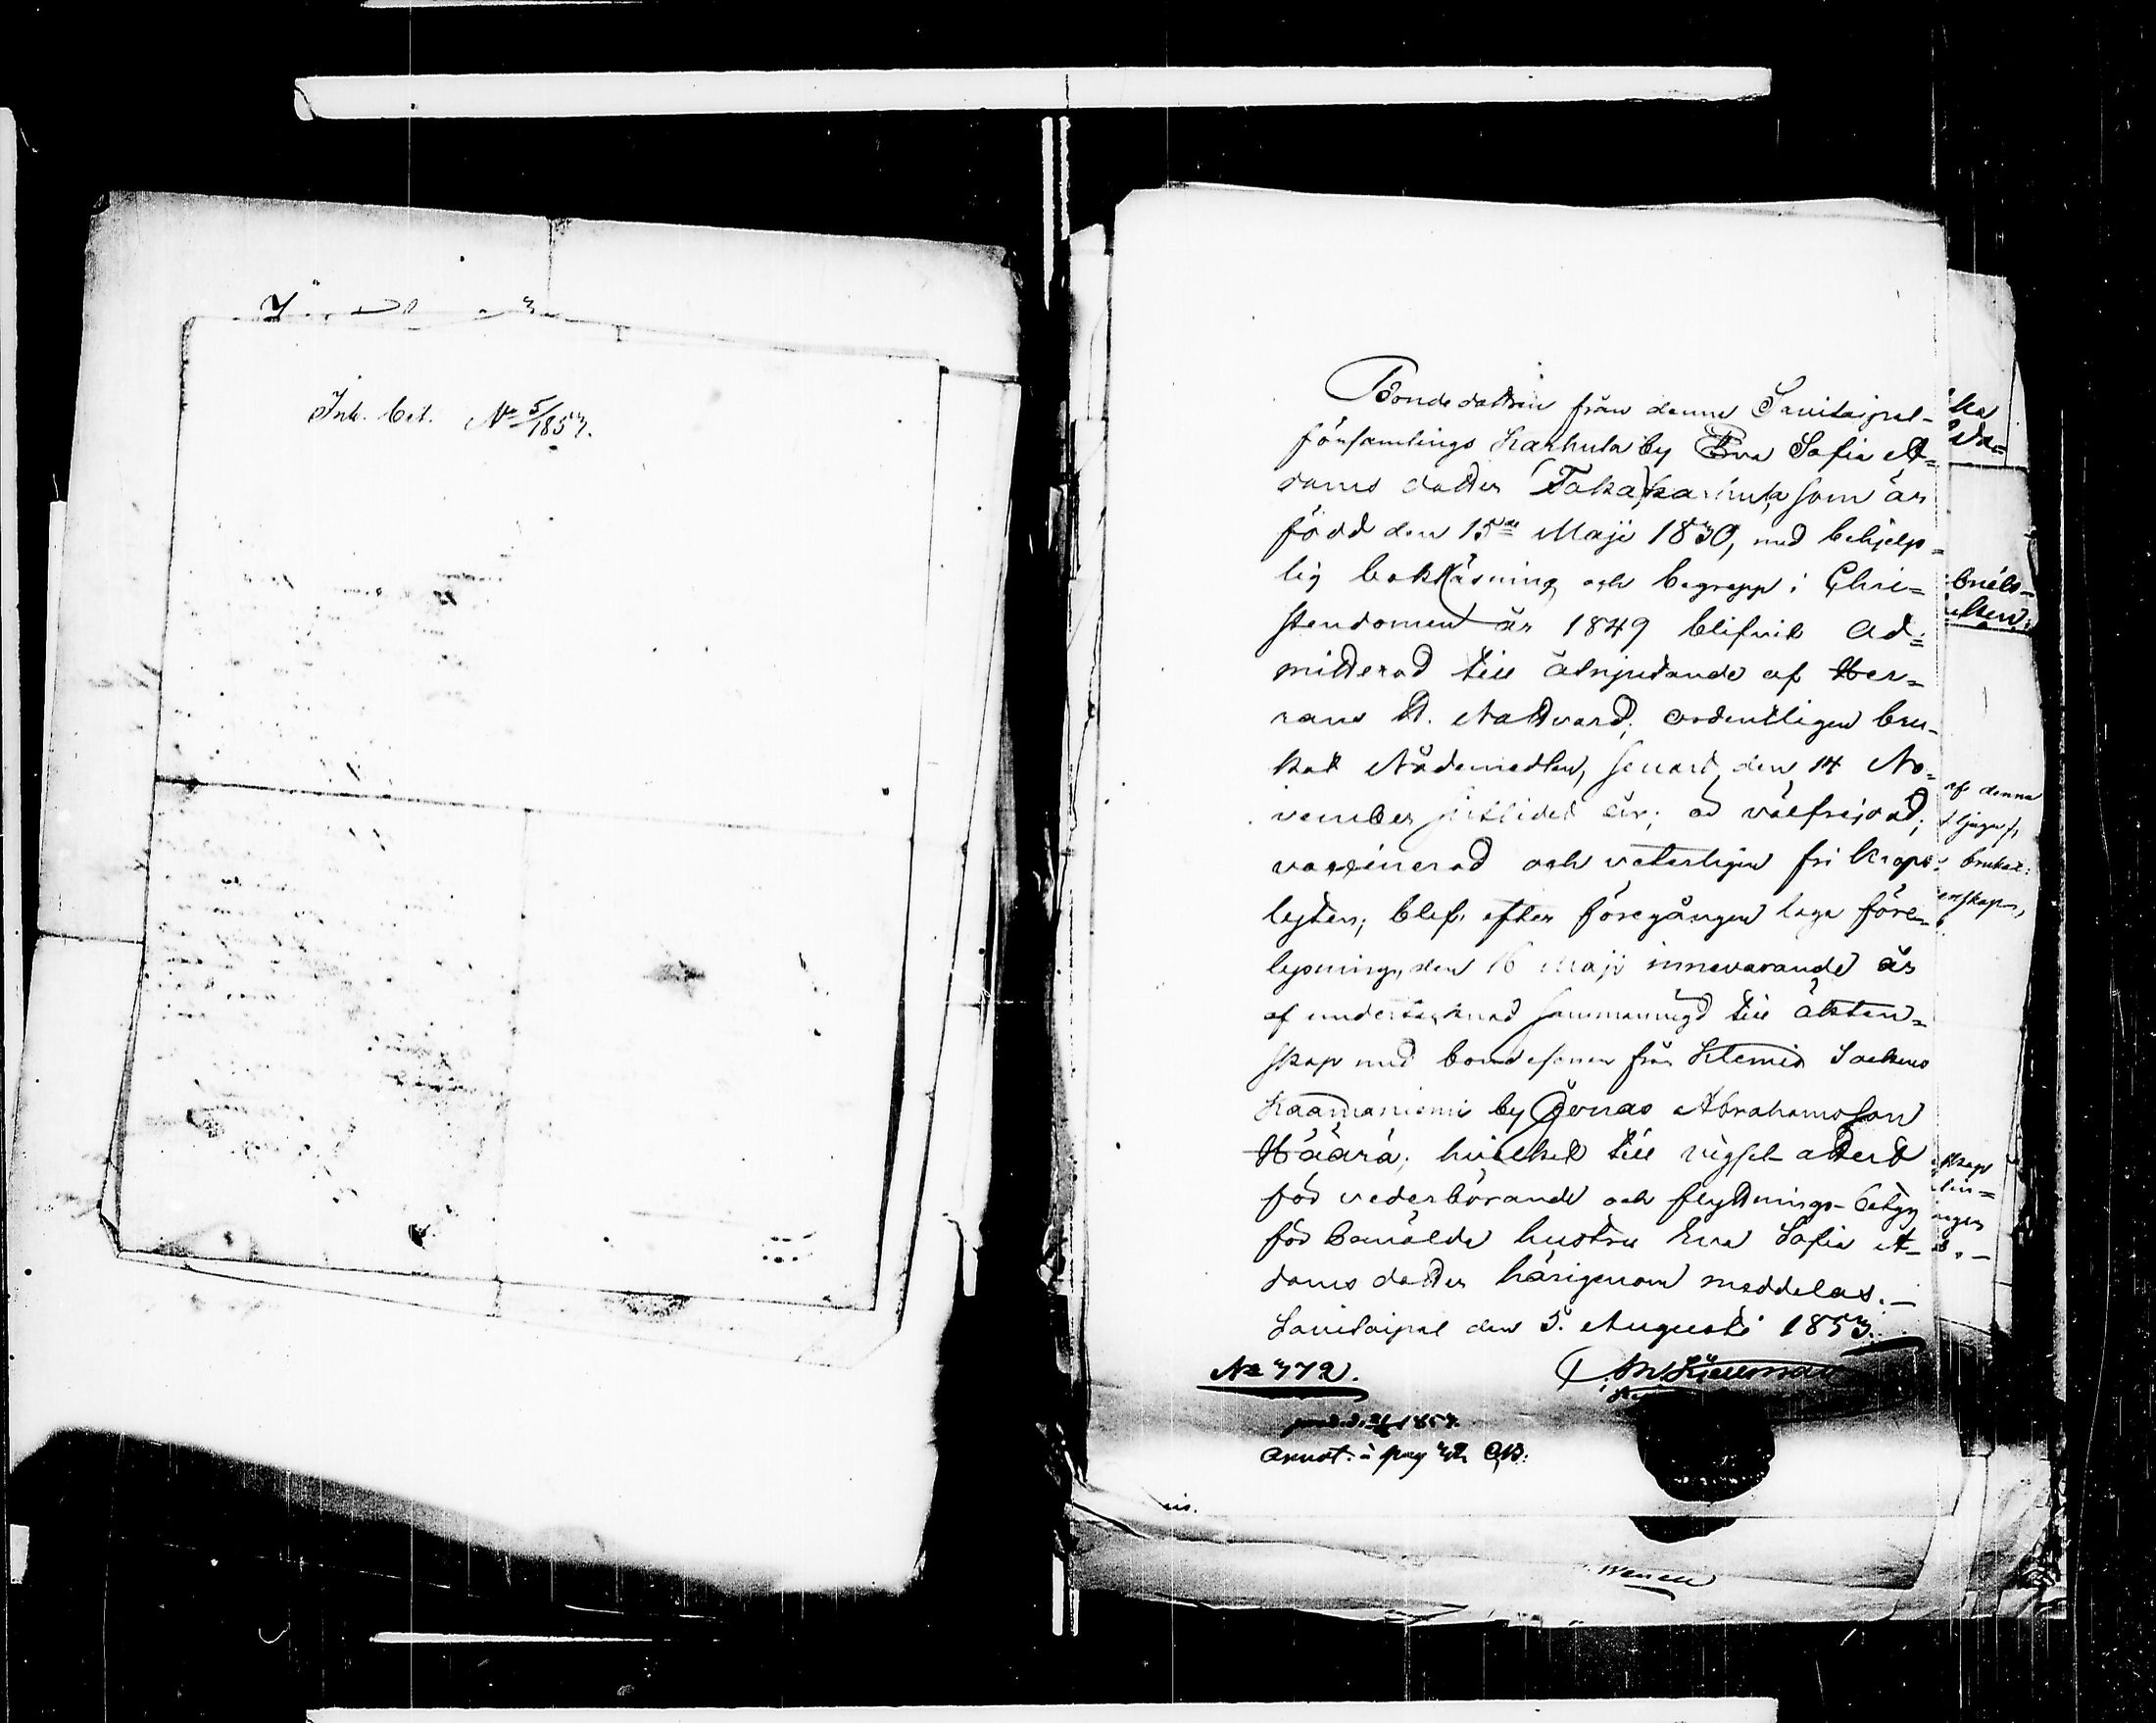 Ink. bet. No 5/1853.
Bondedottren från denna Savitaipal-
församlings Karhula by Eva Sofia A-
dams dotter (Taka)karhula, som är
född den 15de Maji 1830, med behjelp-
lig bokläsning och begrepp i Chri-
stendomen år 1849 blifvit ad-
mitterad till åtnjutande af Her-
rans H. Nattvard; ordentligen bru-
kat Nådemedlen, senast den 14 No-
vember sistlidet år; är välfrejdad;
vaccinerad och veterligen fri kropps
lyten; blef, efter föregången laga före-
lysning, den 16 Maji innevarande år
af undertecknad sammanvigd till äkten-
skap med bondesonen från Klemis Sockens
Kaamaniemi by Jonas Abrahamsson
Häärä; hvilket till vigsel-attest
för vederbörande och flyttnings-betyg
för bemälde hustru Eva Sofia A-
dams dotter härigenom meddelas.—
Savitaipal den 5. Augusti 1853.
No 772.
1853.
Annot. à pag 42
af denna
brukat